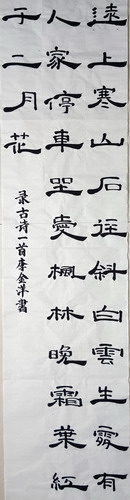 遠上寒山石徑斜白雲生處有
人家停車坐愛楓林晚霜葉紅
于二月花
录古詩一首李金洋書